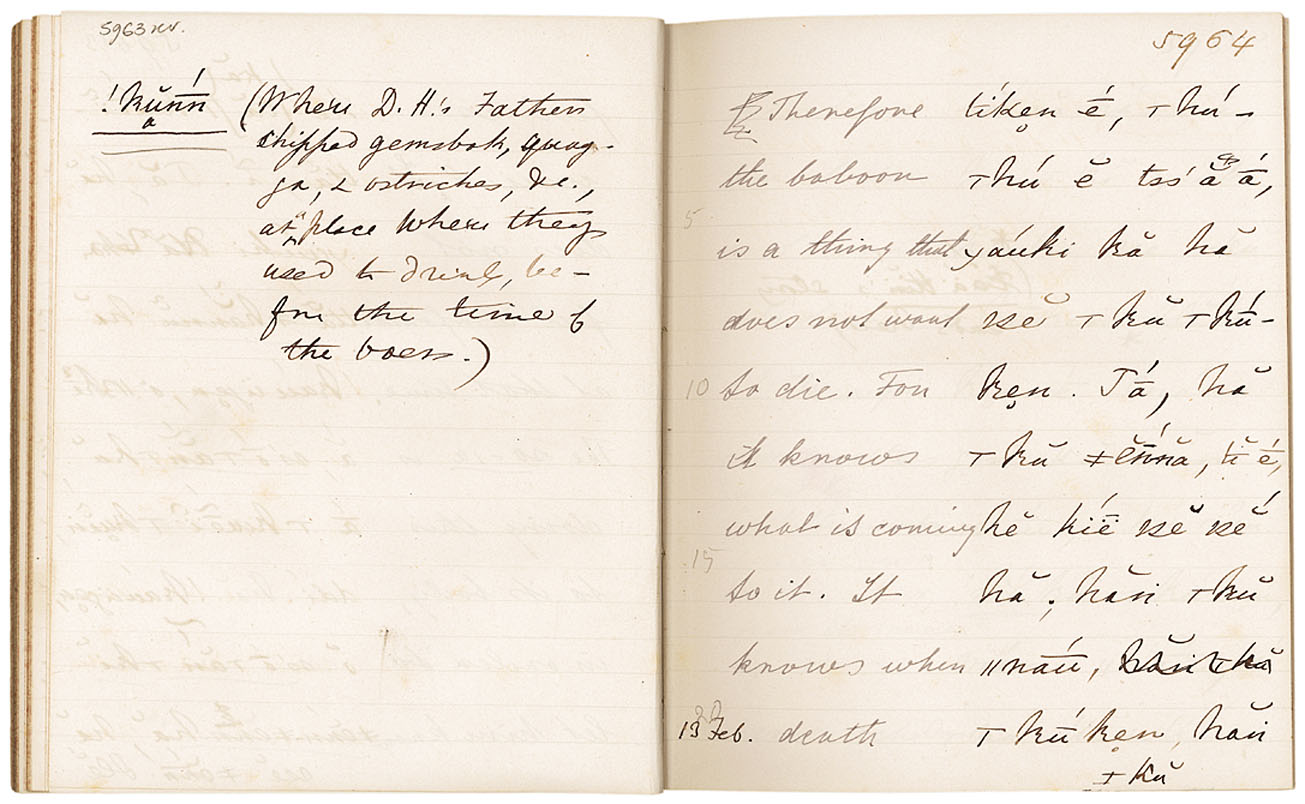 5963 rev.
!kŭńń (Where D. H.'s Father
chipped gemsbok, quag-
ga, & ostriches, &c.,
at a place where they
used to drink, be-
fore the time of
the boers.)
5964
Therefore tíkẹn ē, ⊤hú-
the baboon ⊤hú ĕ tss'ă á,
5
is a thing that yáuki kă hă
does not want sĕ ⊤kŭ ⊤kū́-
10 to die. For kẹn. Tā́, hă
it knows ⊤kŭ ǂĕ́nnă, tĭ é,
what is coming hĕ kíē sĕ sĕ́
15
to it. It hă; hăn ⊤kŭ
knows when ǁnāú,
13 Feb. death ⊤kū́kẹn, hăn
⊤kŭ